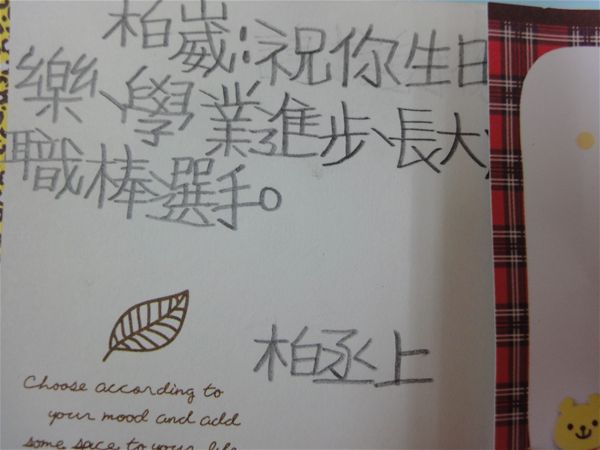 柏崴:祝你生日
樂、學業進步、長大
職棒選手。
柏丞上
Choose according to
your mood and add
some space to your life